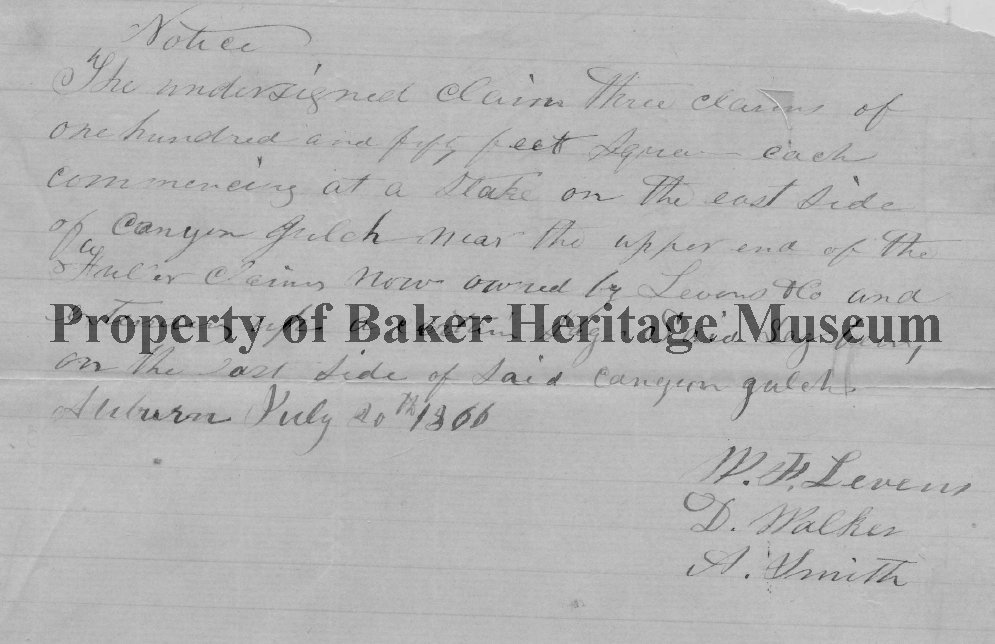 Notice
The undersigned claim three claims of
one hundred and fifty feet square each
commencing at a stake on the east side
of Canyon Gulch near the upper end of the
claims now owned by Levens & Co and
Property of Baker Heritage Museum
up a certain
on the East side of said canyon gulch
Auburn July 20th 1866
W. F. Levens
D. Walker
A. Smith